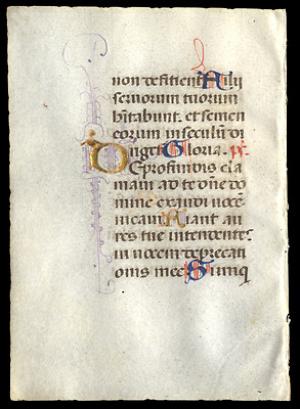 non deficient Filij
seruorum tuorum
h̃itabunt. et semen
eorum in seculũ di
Gloria. ps.
De profundis cla
maui ad te dñe do
mine exaudi uocẽ
meam Fiant au
res tue intendentes
in uocem deprecati
onis mee Si iniq